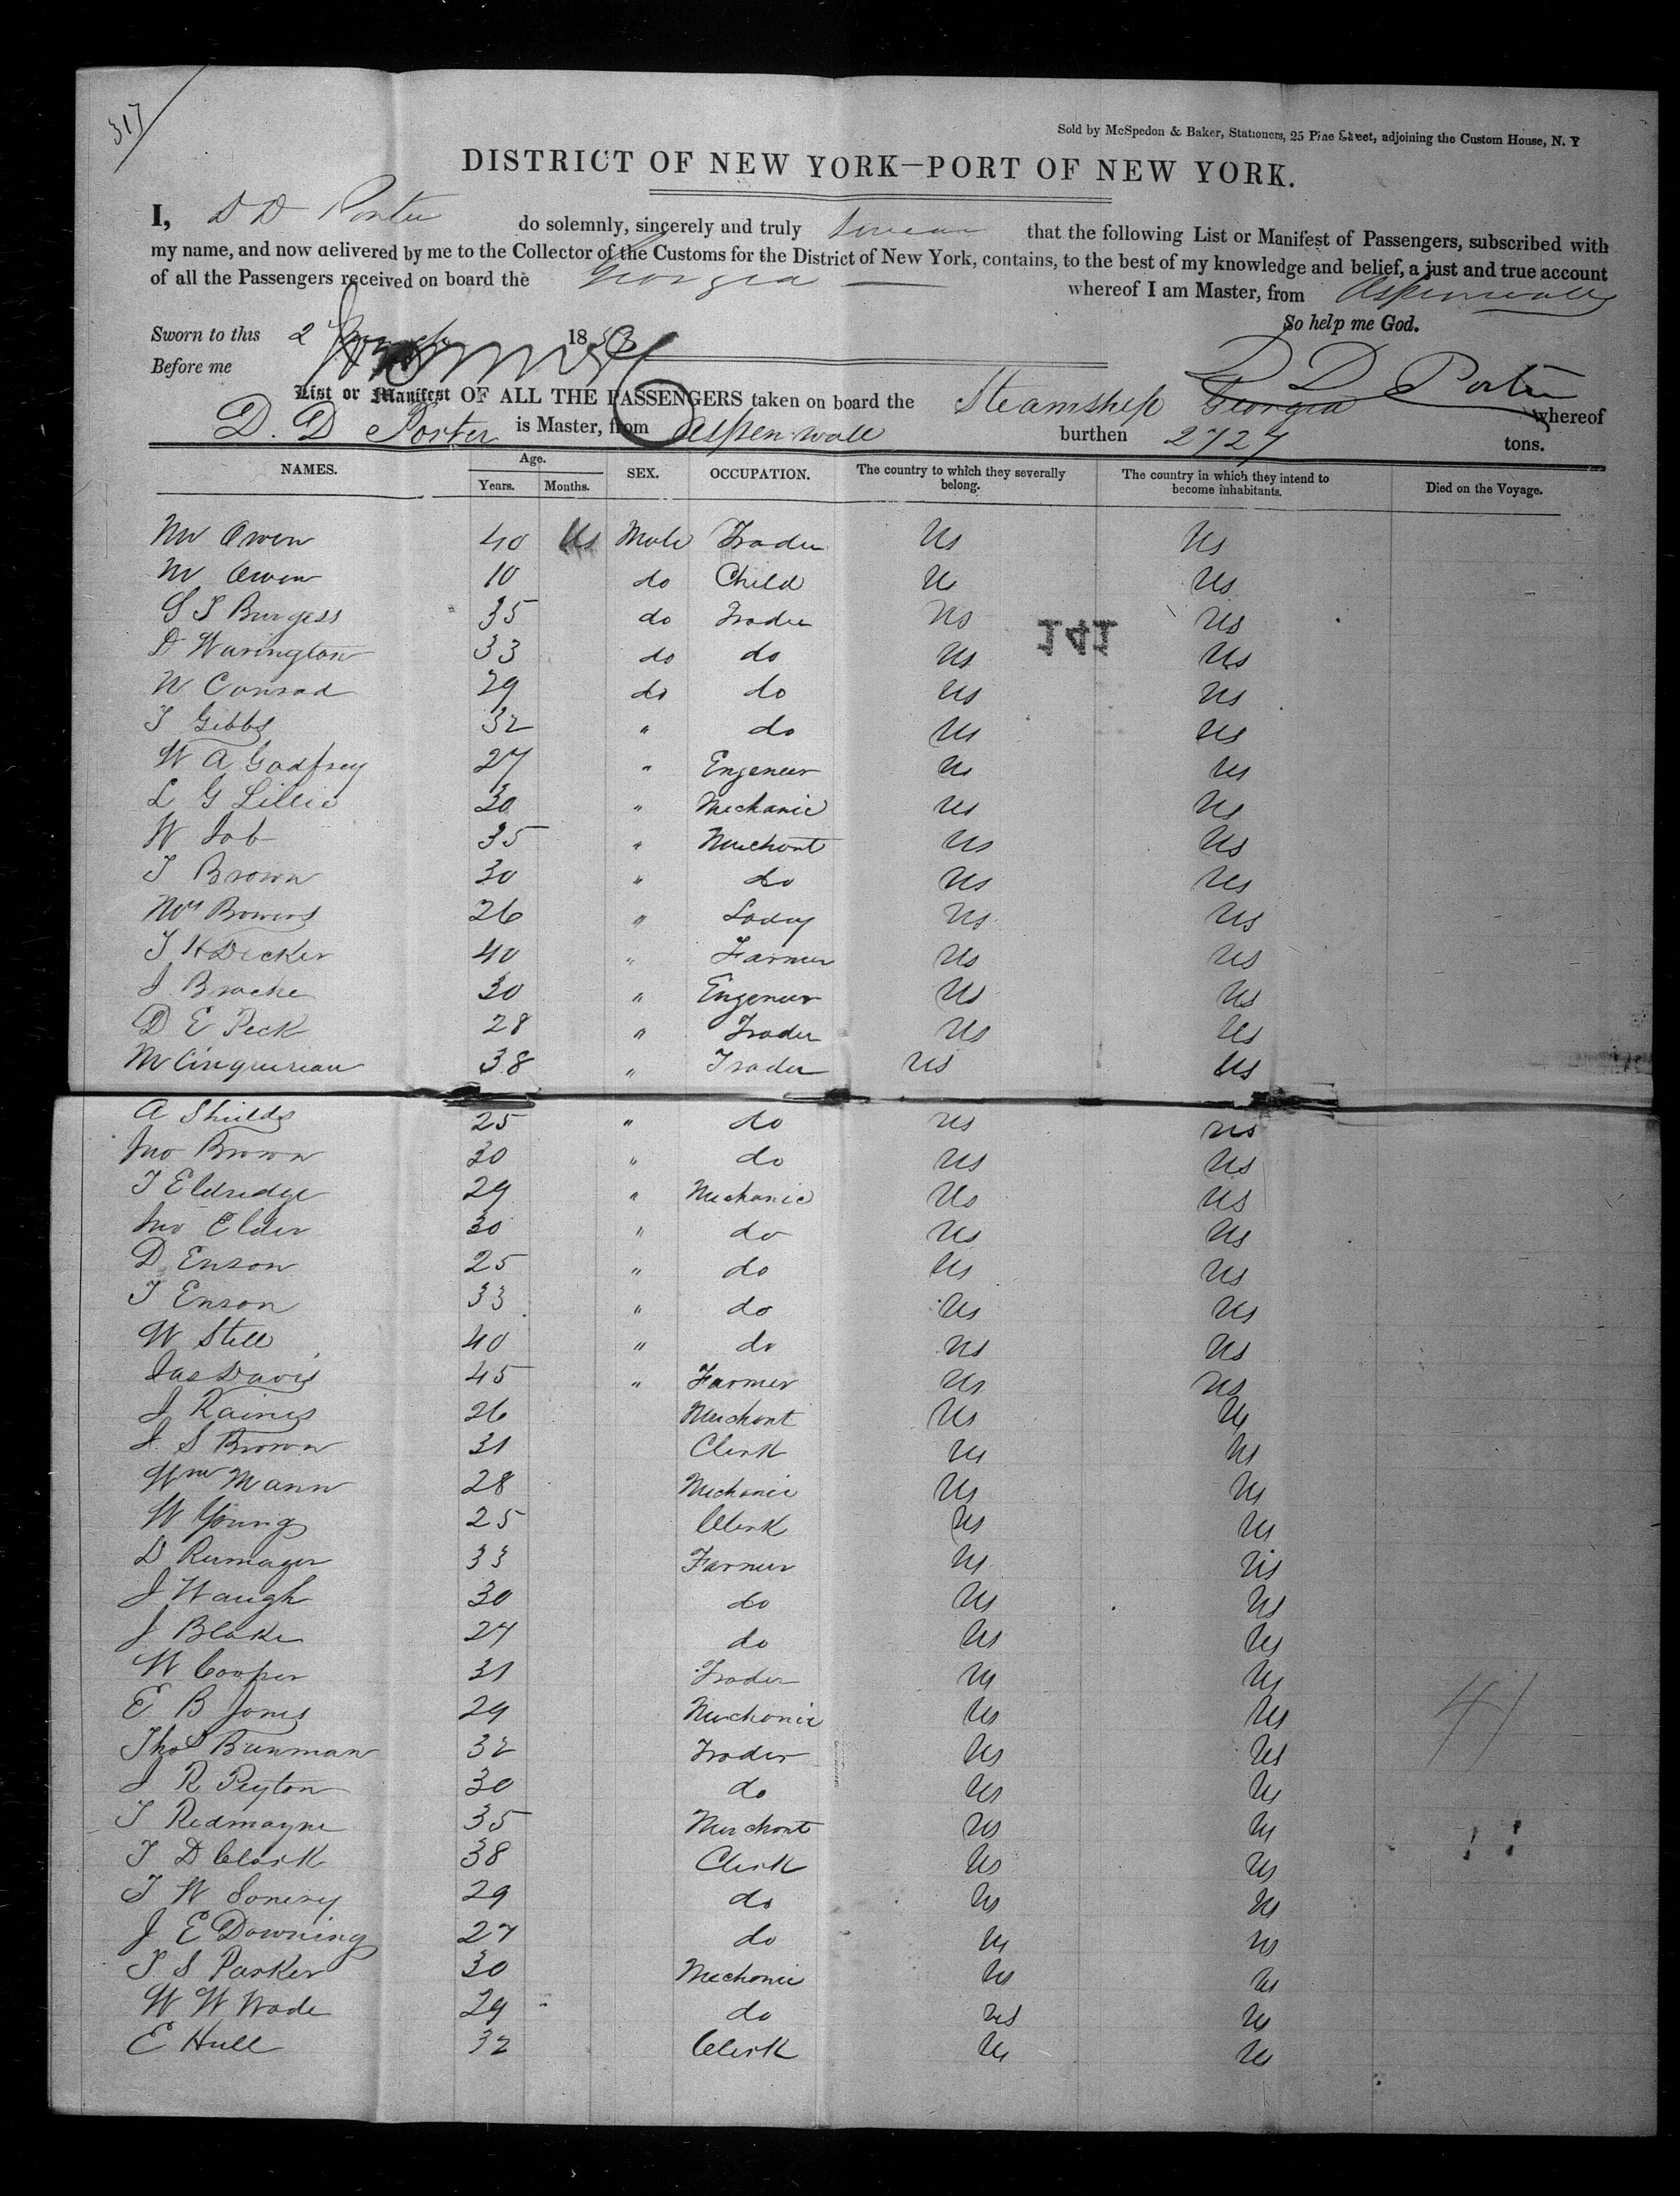 317
Sold by McSpedon & Baker, Stationers, 25 Pine Street, adjoining the Custom House, N. Y
DISTRICT OF NEW YORK—PORT OF NEW YORK.
I, D D Porter do solemnly, sincerely and truly swear that the following List or Manifest of Passengers, subscribed with
my name, and now delivered by me to the Collector of the Customs for the District of New York, contains, to the best of my knowledge and belief, a just and true account
of all the Passengers received on board the Georgia whereof I am Master, from Aspinwall
So help me God.
Sworn to this 2 18 53
Before me
D D Porter
List or Manifest OF ALL THE PASSENGERS taken on board the Steamship Georgia whereof
D. D Porter is Master, from Aspenwall burthen 2727 tons.
NAMES. Age. Years. Months. SEX. OCCUPATION. The country to which they severally belong. The country in which they intend to become inhabitants. Died on the Voyage.
Mr Owen 40 Us Male Trader Us Us
M Owen 10 do Child U Us
S T Burgess 35 do Trader Us Us
141
D Warington 33 do do Us Us
W Conrad 29 do do Us Us
T Gibbs 32 " do Us Us
W A Godfrey 27 " Engeneer Us Us
L G Lillie 30 " Mechanic Us Us
W Job 35 " Merchant Us Us
T Brown 30 " do Us Us
Mrs Bowers 26 " Lady Us Us
T H Decker 40 " Farmer Us Us
J Brache 30 " Engeneer Us Us
D E Peck 28 " Trader Us Us
M 38 " Trader Us Us
A Shields 25 " do Us Us
Jno Brown 30 " do Us Us
T Eldredge 29 " Mechanic Us Us
Jno Elder 30 " do Us Us
D Enson 25 " do Us Us
T Enson 33 " do Us Us
W Still 40 " do Us Us
Jas Davis 45 " Farmer Us Us
J Raines 26 Merchant Us Us
J. S Brown 31 Clerk Us Us
Wm Mann 28 Mechanic Us Us
W Young 25 Clerk Us Us
D Rumager 33 Farmer Us Us
J Waugh 30 do Us Us
J Blake 27 do Us Us
W Cooper 31 Trader Us Us
E B Jones 29 Mechanic Us Us
41
Thos Bunman 32 Trader Us Us
J R Peyton 30 do Us Us
T Redmayne 35 Merchant Us Us
T D Clark 38 Clerk Us Us
T W 29 do Us Us
J E Downing 27 do Us Us
T S Parker 30 Mechanic Us Us
W W Wade 29 do Us Us
E Hull 32 Clerk Us Us